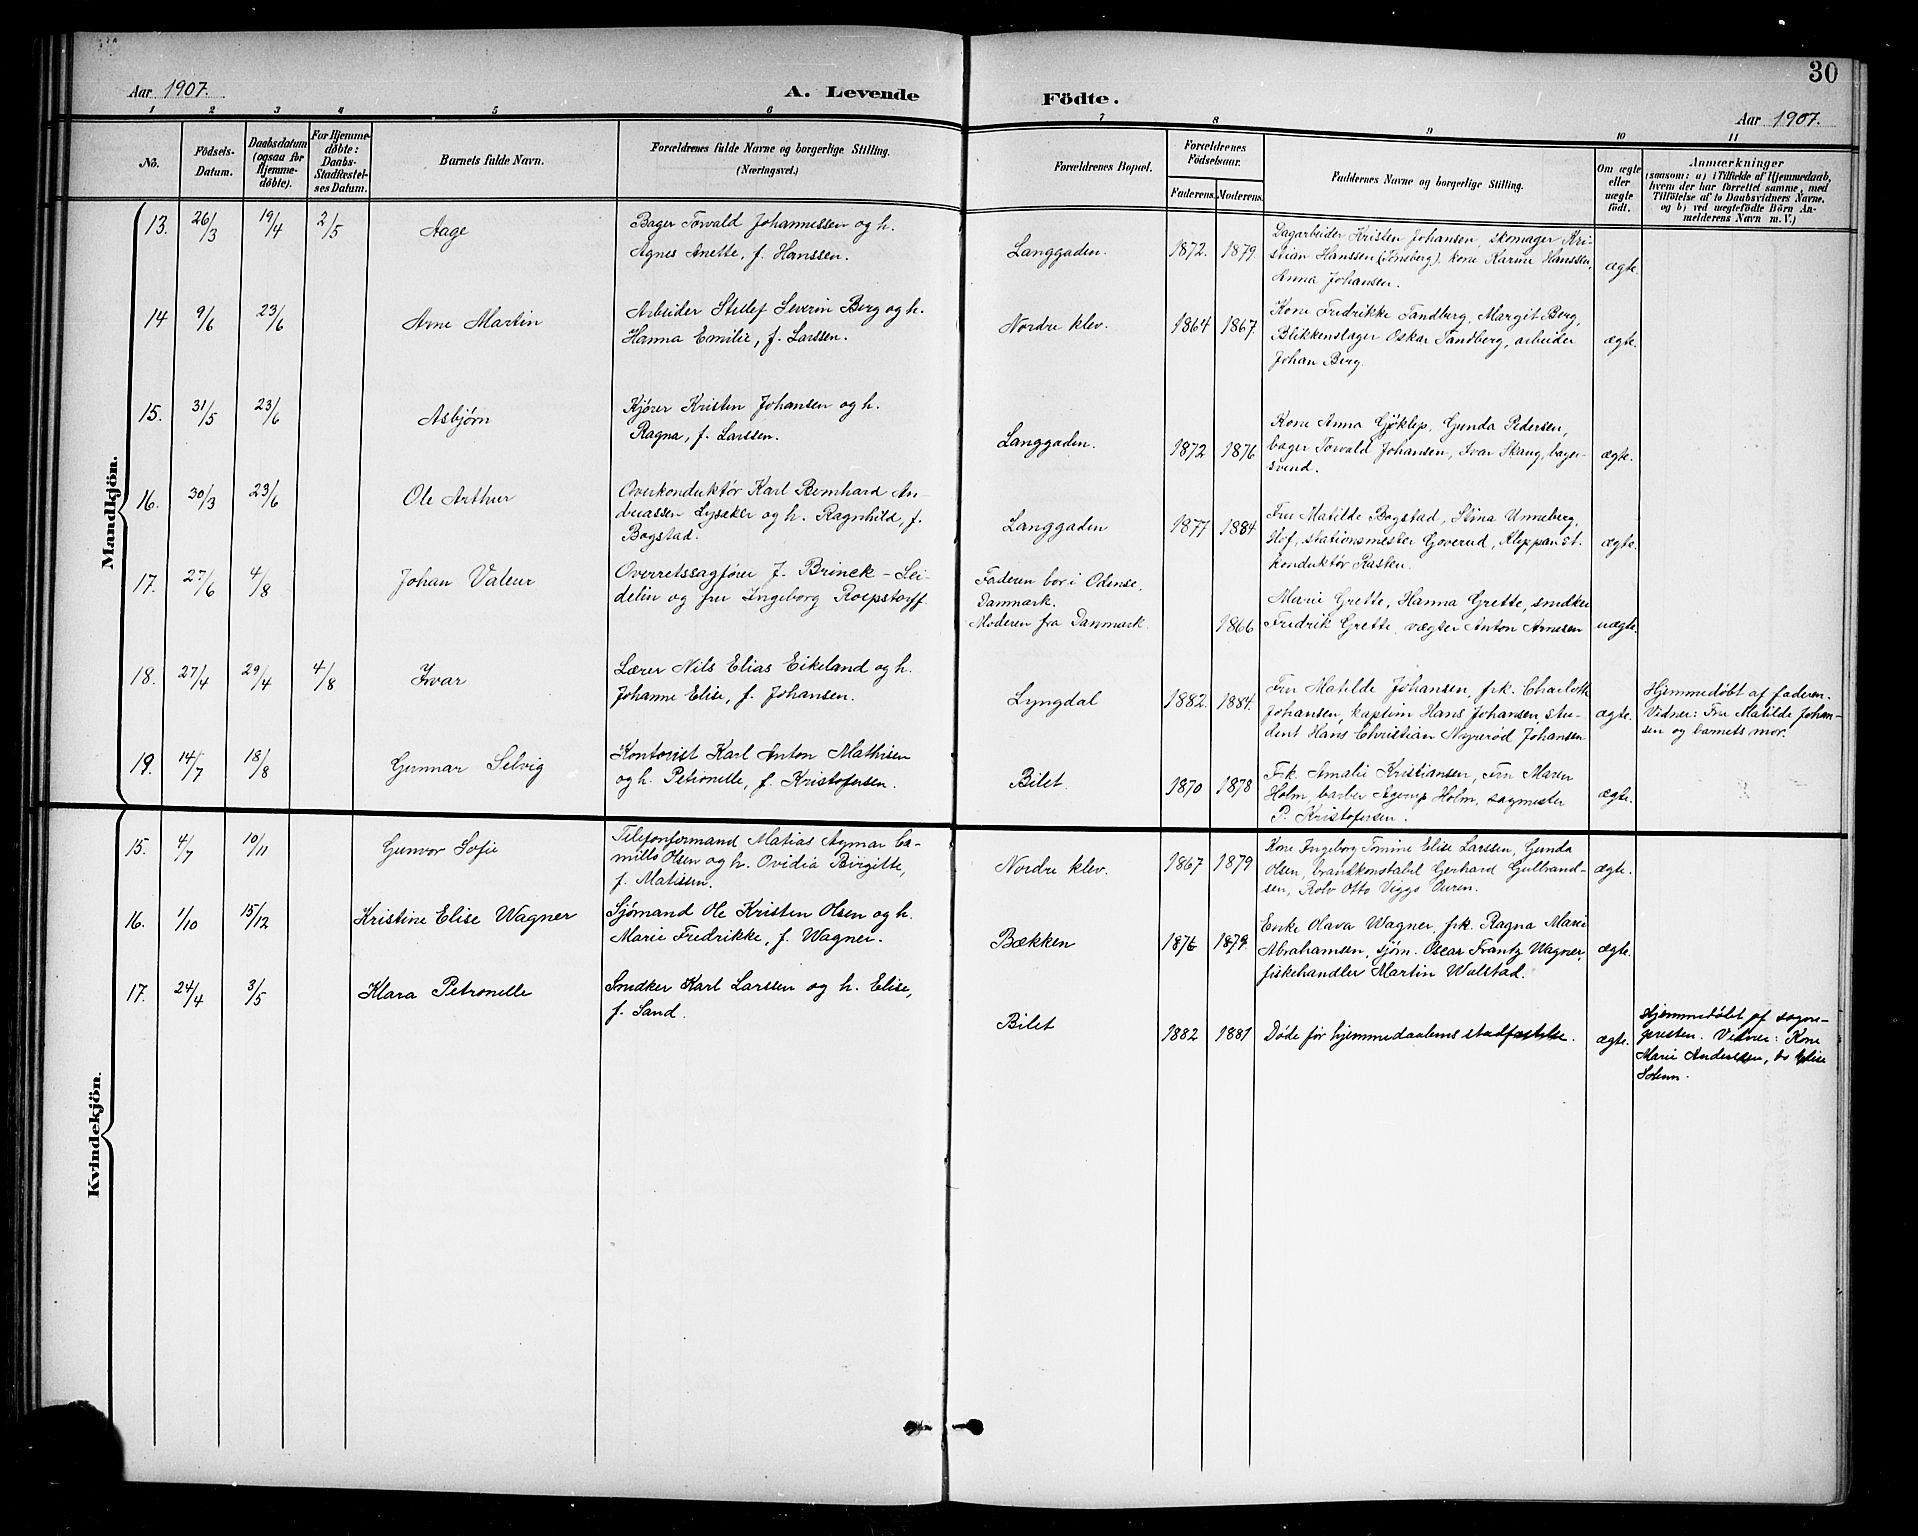 30
Aar 1907.
A. Levende
Födte.
Aar 1907.
1 2 3 4 5 6 7 8 9 10 11
No.
Födsels-
Datum.
Daabsdatum
(ogsaa for
Hjemme-
döbte).
For Hjemme-
döbte:
Daabs-
Stadfæstel-
ses Datum.
Barnets fulde Navn.
Forældrenes fulde Navne og borgerlige Stilling.
(Næringsvei.)
Forældrenes Bopæl.
Forældrenes
Födselsaar.
Faderens. Moderens.
Faddernes Navne og borgerlige Stilling.
Om ægte
eller
uægte
födt.
Anmærkninger
(saasom: a) i Tilfælde af Hjemmedaab,
hvem der har forrettet samme, med
Tilföielse af to Daabsvidners Navne.
og b) ved uægtefödte Börn An-
melderens Navn m. V.)
Mandkjön.
13. 26/3 19/4 2/5 Aage
Bager Torvald Johannessen og h.
Agnes Anette, f. Hanssen.
Langgaden. 1872. 1879.
Dagarbeider Kristen Johansen, skomager Kri-
stian Hanssen (Tønsberg), kone Karine Hanssen,
Anna Johansen.
ægte.
14 9/6 23/6 Arne Martin
Arbeider Stillef Severin Berg og h.
Hanna Emilie, f. Larssen.
Nordre klev. 1864 1867.
Kone Fredrikke Sandberg, Margit Berg,
Blikkenslager Oskar Sandberg, arbeider
Johan Berg.
ægte.
15. 31/5 23/6 Asbjørn
Kjører Kristen Johansen og h.
Ragna, f. Larssen.
Langgaden. 1872 1876
Kone Anna Gjøklep, Gunda Pedersen,
bager Torvald Johansen, Ivar Skaug, bager-
svend.
ægte.
16. 30/3 23/6 Ole Arthur
Overkonduktør Karl Bernhard An-
dreassen Lysaker og h. Ragnhild, f.
Bogstad.
Langgaden 1877 1884
Fru Matilde Bogstad, Stina Unneberg,
Hof, stationsmester Goverud, Kleppan st.
konduktør Rasken.
ægte.
17. 27/6 4/8 Johan Valeur
Overretssagfører J. Brinck-Sei-
delin og fru Ingeborg Roepstorff.
Faderen bor i Odense,
Danmark.
Moderen fra Danmark.
1866
Marie Grette, Hanna Grette, snedker
Fredrik Grette, vægter Anton Arnesen
uægte.
18. 27/4 29/4 4/8 Ivar
Lærer Nils Elias Eikeland og h.
Johanne Elise, f. Johansen.
Lyngdal 1882. 1884.
Fru Matilde Johansen, frk. Charlotte
Johansen, kaptein Hans Johansen, stu-
dent Hans Christian Nyerød Johansen
ægte.
Hjemmedøbt af faderen.
Vidner: Fru Matilde Johan-
sen og barnets mor.
19. 14/7 18/8 Gunnar Selvig
Kontorist Karl Anton Mathisen
og h. Petronelle, f. Kristofersen.
Bilet. 1870 1878
Frk. Amalie Kristiansen, Fru Maren
Holm, barber Agerup Holm, sagmester
P. Kristofersen.
ægte.
Kvindekjön.
15. 4/7 10/11 Gunvor Sofie
Telefonformand Matias Aymar Ca-
millo Olsen og h. Ovidia Birgitte,
f. Matissen.
Nordre klev. 1867 1879
Kone Ingeborg Tomine Elise Larssen, Gunda
Olsen, brandkonstabel Gerhard Gulbrand-
sen, Rolv Otto Viggo Ouren.
ægte.
16. 1/10 15/12 Kristine Elise Wagner
Sjømand Ole Kristen Olsen og h.
Marie Fredrikke, f. Wagner.
Bækken 1876 1879.
Enke Olava Wagner, frk. Ragna Marie
Abrahamsen, sjøm. Oscar Frantz Wagner,
fiskehandler Martin Walstad.
ægte.
17. 24/4 3/5 Klara Petronelle
Snedker Karl Larssen og h. Elise,
f. Sand.
Bilet 1882 1881
Døde før hjemmedaabens stadfæstelse.
ægte.
Hjemmedøbt af sogne-
presten. Vidner: Kone
Marie Anderssen, do Elise